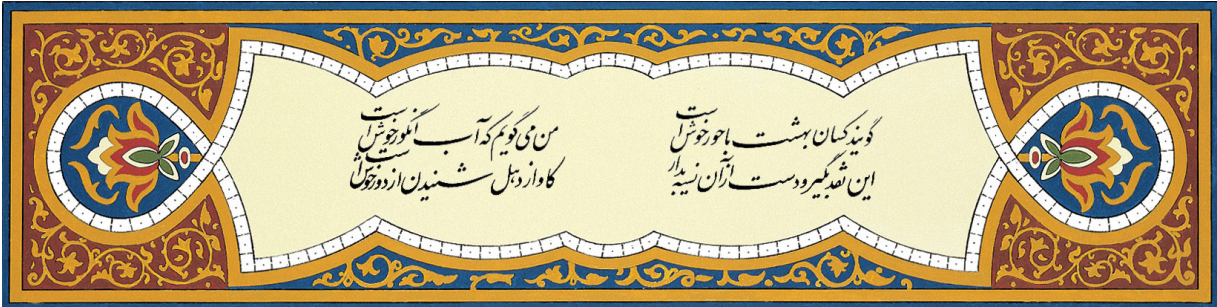 گویند کسان بهشت با حور خوش است
من می گویم که آب انگور خوش است
این نقد بگیر و دست از آن نسیه بدار
کاواز دهل شنیدن از دور خوش است